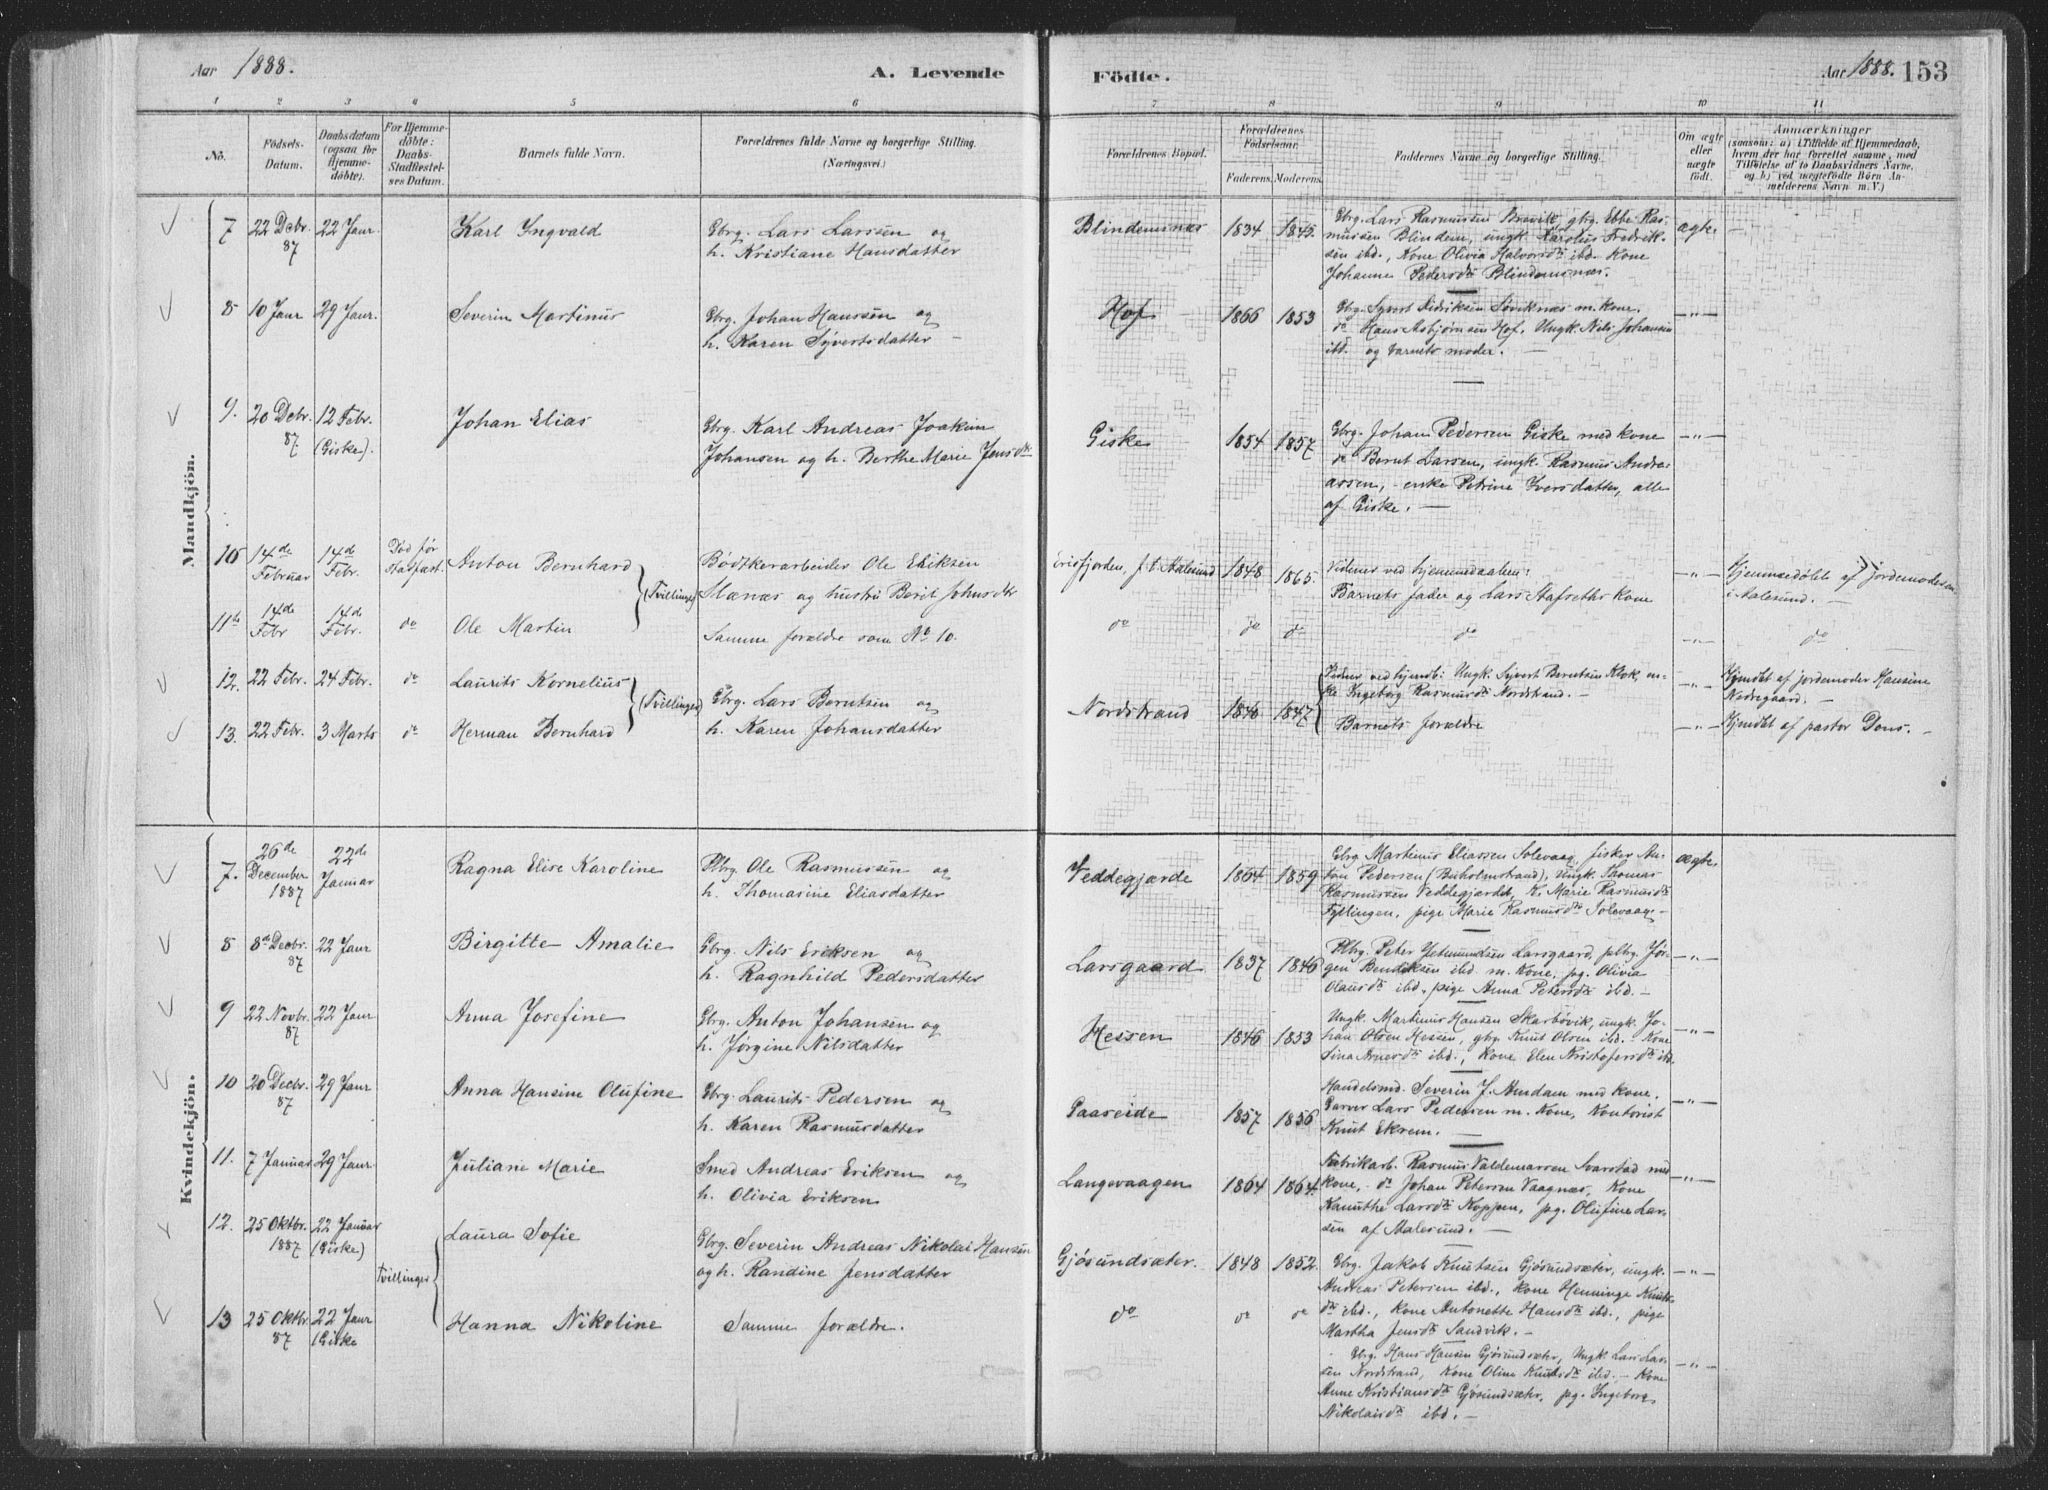 Aar 1888. A. Levende Födte. Aar 1888. 153
1 2 3 4 5 6 7 8 9 10 11
No.
Födsels-Datum.
Daabsdatum (ogsaa for Hjemme-döbte).
For Hjemme-döbte: Daabs-Stadfæstel-ses Datum.
Barnets fulde Navn.
Forældrenes fulde Navne og borgerlige Stilling. (Næringsvei.)
Forældrenes Bopæl.
Forældrenes Födselsaar. Faderens. Moderens.
Faddernes Navne og borgerlige Stilling.
Om ægte eller uægte födt.
Anmærkninger
(saasom: a) i Tilfælde af Hjemmedaab,
hvem der har forrettet samme, med
Tilföielse af to Daabsvidners Navne,
og b) ved uægtefödte Börn An-
melderens Navn m. V.)
Mandkjön.
7 22 Decbr. 87 22 Janr. Karl Yngvald
Gbrg. Lars Larsen og
h. Kristiane Hansdatter
Blindemsnæs 1834 1845.
Gbrg. Lars Rasmussen Brevik, gbrg. Ebbe Ras-
mussen Blindem, ungk. Karolus Fredrik-
sen ibd., Kone Olivia Halvorsdtr ibd. Kone
Johanne Pedersdtr Blindemsnæs.
ægte. —
8 10 Janr 29 Janr. Severin Martinus
Gbrg. Johan Hansen og
h. Karen Syvertsdatter —
Hof 1866 1853
Gbrg. Syvert Didriksen Söviknæs m. kone,
do Hans Asbjørnsen Hof, Ungk. Nils Johansen
ibd. og barnets moder. —
—"—
9. 20 Decbr. 87 12 Febr. (Giske). Johan Elias
Gbrg. Karl Andreas Joakim
Johansen og h. Berthe Marie Jensdtr
Giske 1854 1857
Gbrg. Johan Pedersen Giske med kone
do Bernt Larsen, ungk. Rasmus Andre-
assen, - enke Petrine Iversdatter, alle
af Giske. —
—"—
10 14de Februar 14de Febr. Død før Stadfæst. Anton Bernhard (Tvillinger)
Bødtkerarbeider Ole Eriksen
Slænæs og hustru Berit Johnsdtr
Erisfjorden, f. t. Aalesund 1848 1865.
Vidner ved hjemmedaaben:
Barnets fader og Lars Stafseths Kone
—"— Hjemmedöbte af jordemoderen
i Aalesund. —
11te 14de Febr 14de Febr. do Ole Martin
Samme forældre som No 10.
do do do do —"— do
12. 22 Febr. 24 Febr. do Laurits Kornelius (Tvillinger)
Gbrg. Lars Berntsen og
h. Karen Johansdatter
Nordstrand 1846 1847
Vidner ved hjmdb: Ungk. Syvert Berntsen Klok, en-
ke Ingeborg Rasmusdtr Nordstrand. —
—"— Hjmdöbt af jordemoder Hansine
Nedregaard. —
13. 22 Febr. 3 Marts do Herman Bernhard
Barnets forældre
—"— Hjmdöbt af pastor Dons. —
Kvindekjön.
7. 26de December 1887 22de Januar Ragna Elise Karoline
Plbrg. Ole Rasmussen og
h. Thomasine Eliasdatter
Veddegjærde 1864 1859
Gbrg Martinus Eliassen Solevaag, fisker An-
ton Pedersen (Buholmstrand), Ungk. Thomas
Rasmussen Veddegjærdet, K. Marie Rasmusdtr
Fyllingen, pige Marie Rasmusdtr Solevaag —
ægte.
8 8de Decbr. 87 22 Janr Birgitte Amalie
Gbrg. Nils Eriksen og
h. Ragnhild Pedersdatter
Larsgaard 1837 1846
Plbrg. Peter Gutmundsen Larsgaard, plbrg. Jør-
gen Bendiksen ibd. m. Kone, pg. Olivia
Olausdtr ibd., pige Anna Petersdtr ibd. —
—"—
9 22 Novbr. 87 22 Janr Anna Josefine
Gbrg. Anton Johansen og
h. Jørgine Nilsdatter
Hessen 1846 1853
Ungk. Martinus Hansen Skarbövik, ungk. Jo-
han Olsen Hessen, gbrg Knut Olsen ibd. Kone
Sina Arnesdtr ibd., kone Elen Kristofersdtr ibd.
—"—
10 20 Decbr. 87 29 Janr Anna Hansine Olufine
Gbrg. Laurits Pedersen og
h. Karen Rasmusdatter
Gaaseide 1857 1856
Handelsmd. Severin J. Amdam med kone,
Garver Lars Pedersen m. Kone, Kontorist
Knut Ekrem. —
—"—
11. 7 Januar 29 Janr. Juliane Marie
Smed Andreas Eriksen og
h. Olivia Eriksen
Langevaagen 1864 1864.
Fabrikarb. Rasmus Valdemarsen Svarstad med
kone, - do Johan Petersen Vaagnæs, Kone
Kanuthe Larsdtr Koppen, pg. Olufine Lar-
sen af Aalesund. —
—"—
12. 25 Oktbr. 1887 22 Januar (Giske) Tvillinger Laura Sofie
Gbrg. Severin Andreas Nikolai Hansen
og h. Randine Jensdatter
Gjösundsæter. 1848 1852.
Gbrg. Jakob Knutsen Gjösundsæter, ungk.
Andreas Petersen ibd., kone Henninge Knuts-
dtr ibd., Kone Antonette Hansdtr ibd., pige
Martha Jensdtr Sandvik. —
—"—
13 25 Oktbr. 87 22 Janr (Giske Hanna Nikoline
Samme forældre.
do do do
Gbrg. Hans Hansen Gjösundsæter, Ungk. Lars Lar-
sen Nordstrand, Kone Oline Knutsdtr ibd. — Kone
Anne Kristiansdtr Gjösundsæter, pg. Ingeborg
Nikolaisdtr ibd. —
—"—